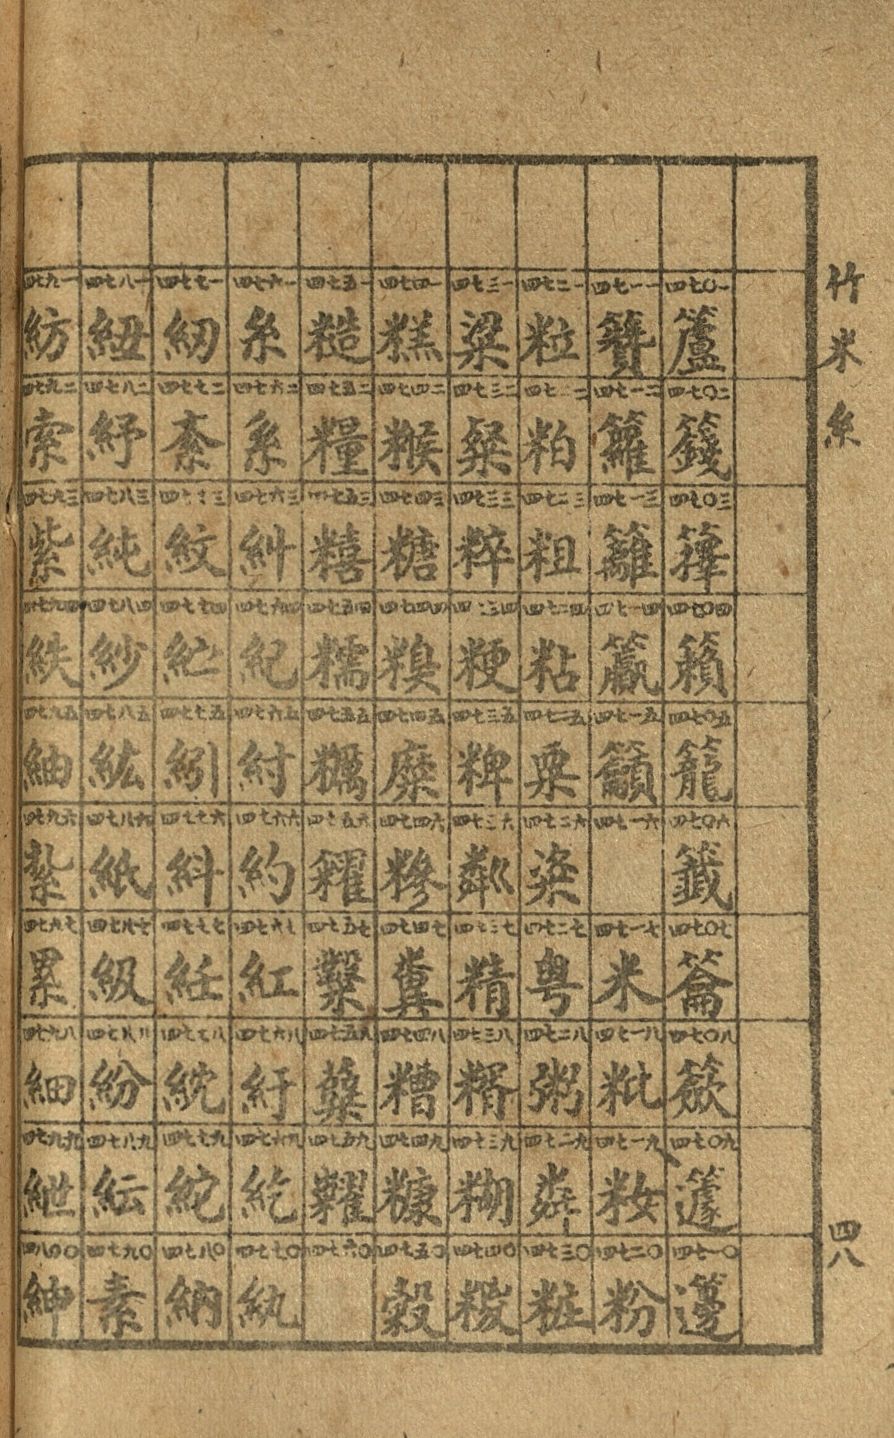 竹米糸
四八
四七〇一 籚 四七〇二 籛 四七〇三 籜 四七〇四 籟 四七〇五 籠 四七〇六 籤 四七〇七 籥 四七〇八 籢 四七〇九 籧 四七一〇 籩
四七一一 籫 四七一二 籮 四七一三 籬 四七一四 籯 四七一五 籲 四七一六 四七一七 米 四七一八 粃 四七一九 籹 四七二〇 粉
四七二一 粒 四七二二 粕 四七二三 粗 四七二四 粘 四七二五 粟 四七二六 粢 四七二七 粵 四七二八 粥 四七二九 粦 四七三〇 粧
四七三一 粱 四七三二 粲 四七三三 粹 四七三四 粳 四七三五 粺 四七三六 粼 四七三七 精 四七三八 糈 四七三九 糊 四七四〇 糉
四七四一 糕 四七四二 糇 四七四三 糖 四七四四 糗 四七四五 糜 四七四六 糝 四七四七 糞 四七四八 糟 四七四九 糠 四七五〇 糓
四七五一 糙 四七五二 糧 四七五三 糦 四七五四 糯 四七五五 糲 四七五六 糴 四七五七 糳 四七五八 糵 四七五九 糶 四七六〇
四七六一 糸 四七六二 系 四七六三 糾 四七六四 紀 四七六五 紂 四七六六 約 四七六七 紅 四七六八 紆 四七六九 紇 四七七〇 紈
四七七一 紉 四七七二 紊 四七七三 紋 四七七四 四七七五 紖 四七七六 紏 四七七七 紝 四七七八 紞 四七七九 紽 四七八〇 納
四七八一 紐 四七八二 紓 四七八三 純 四七八四 紗 四七八五 紘 四七八六 紙 四七八七 級 四七八八 紛 四七八九 紜 四七九〇 素
四七九一 紡 四七九二 索 四七九三 紫 四七九四 紩 四七九五 紬 四七九六 紮 四七九七 累 四七九八 細 四七九九 紲 四八〇〇 紳